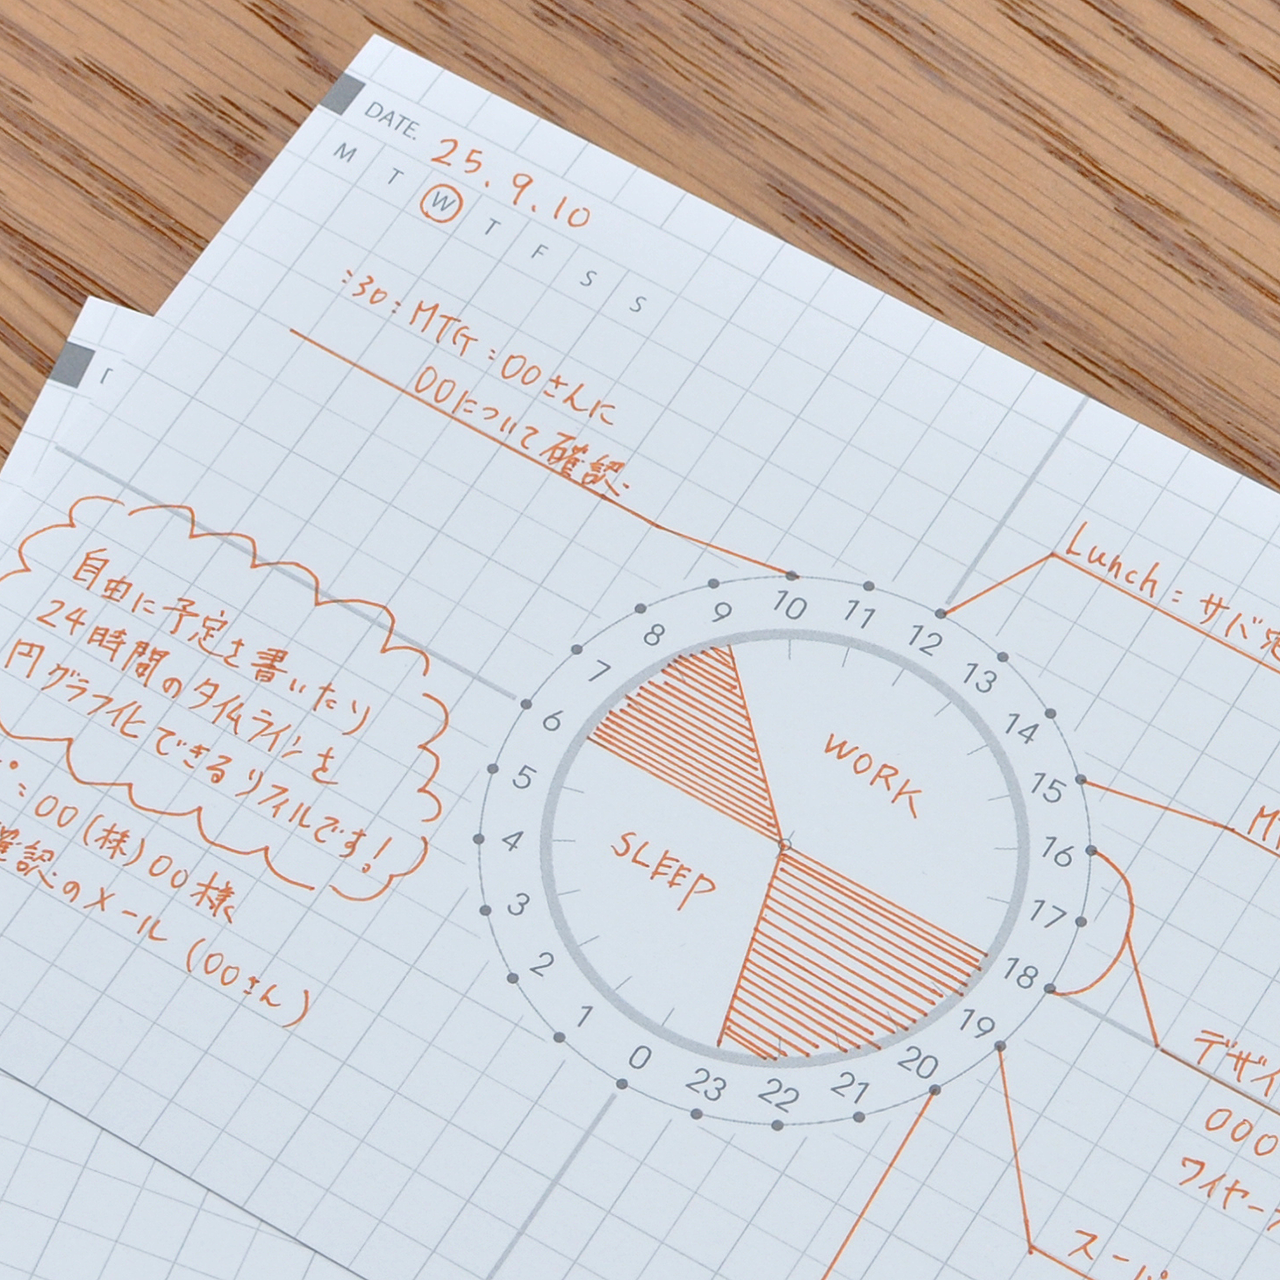 DATE. 25.9.10
M T W T F S S
:30: MTG:〇〇さんに
〇〇について確認
自由に予定を書いたり
24時間のタイムラインを
円グラフ化できるリフィルです!
:〇〇(株)〇〇様
確認のメール(〇〇さん)
Lunch:サバ定
0
1
2
3
4
5
6
7
8
9
10
11
12
13
14
15
16
17
18
19
20
21
22
23
WORK
SLEEP
デザイ
〇〇〇
ワイヤー
スーパ